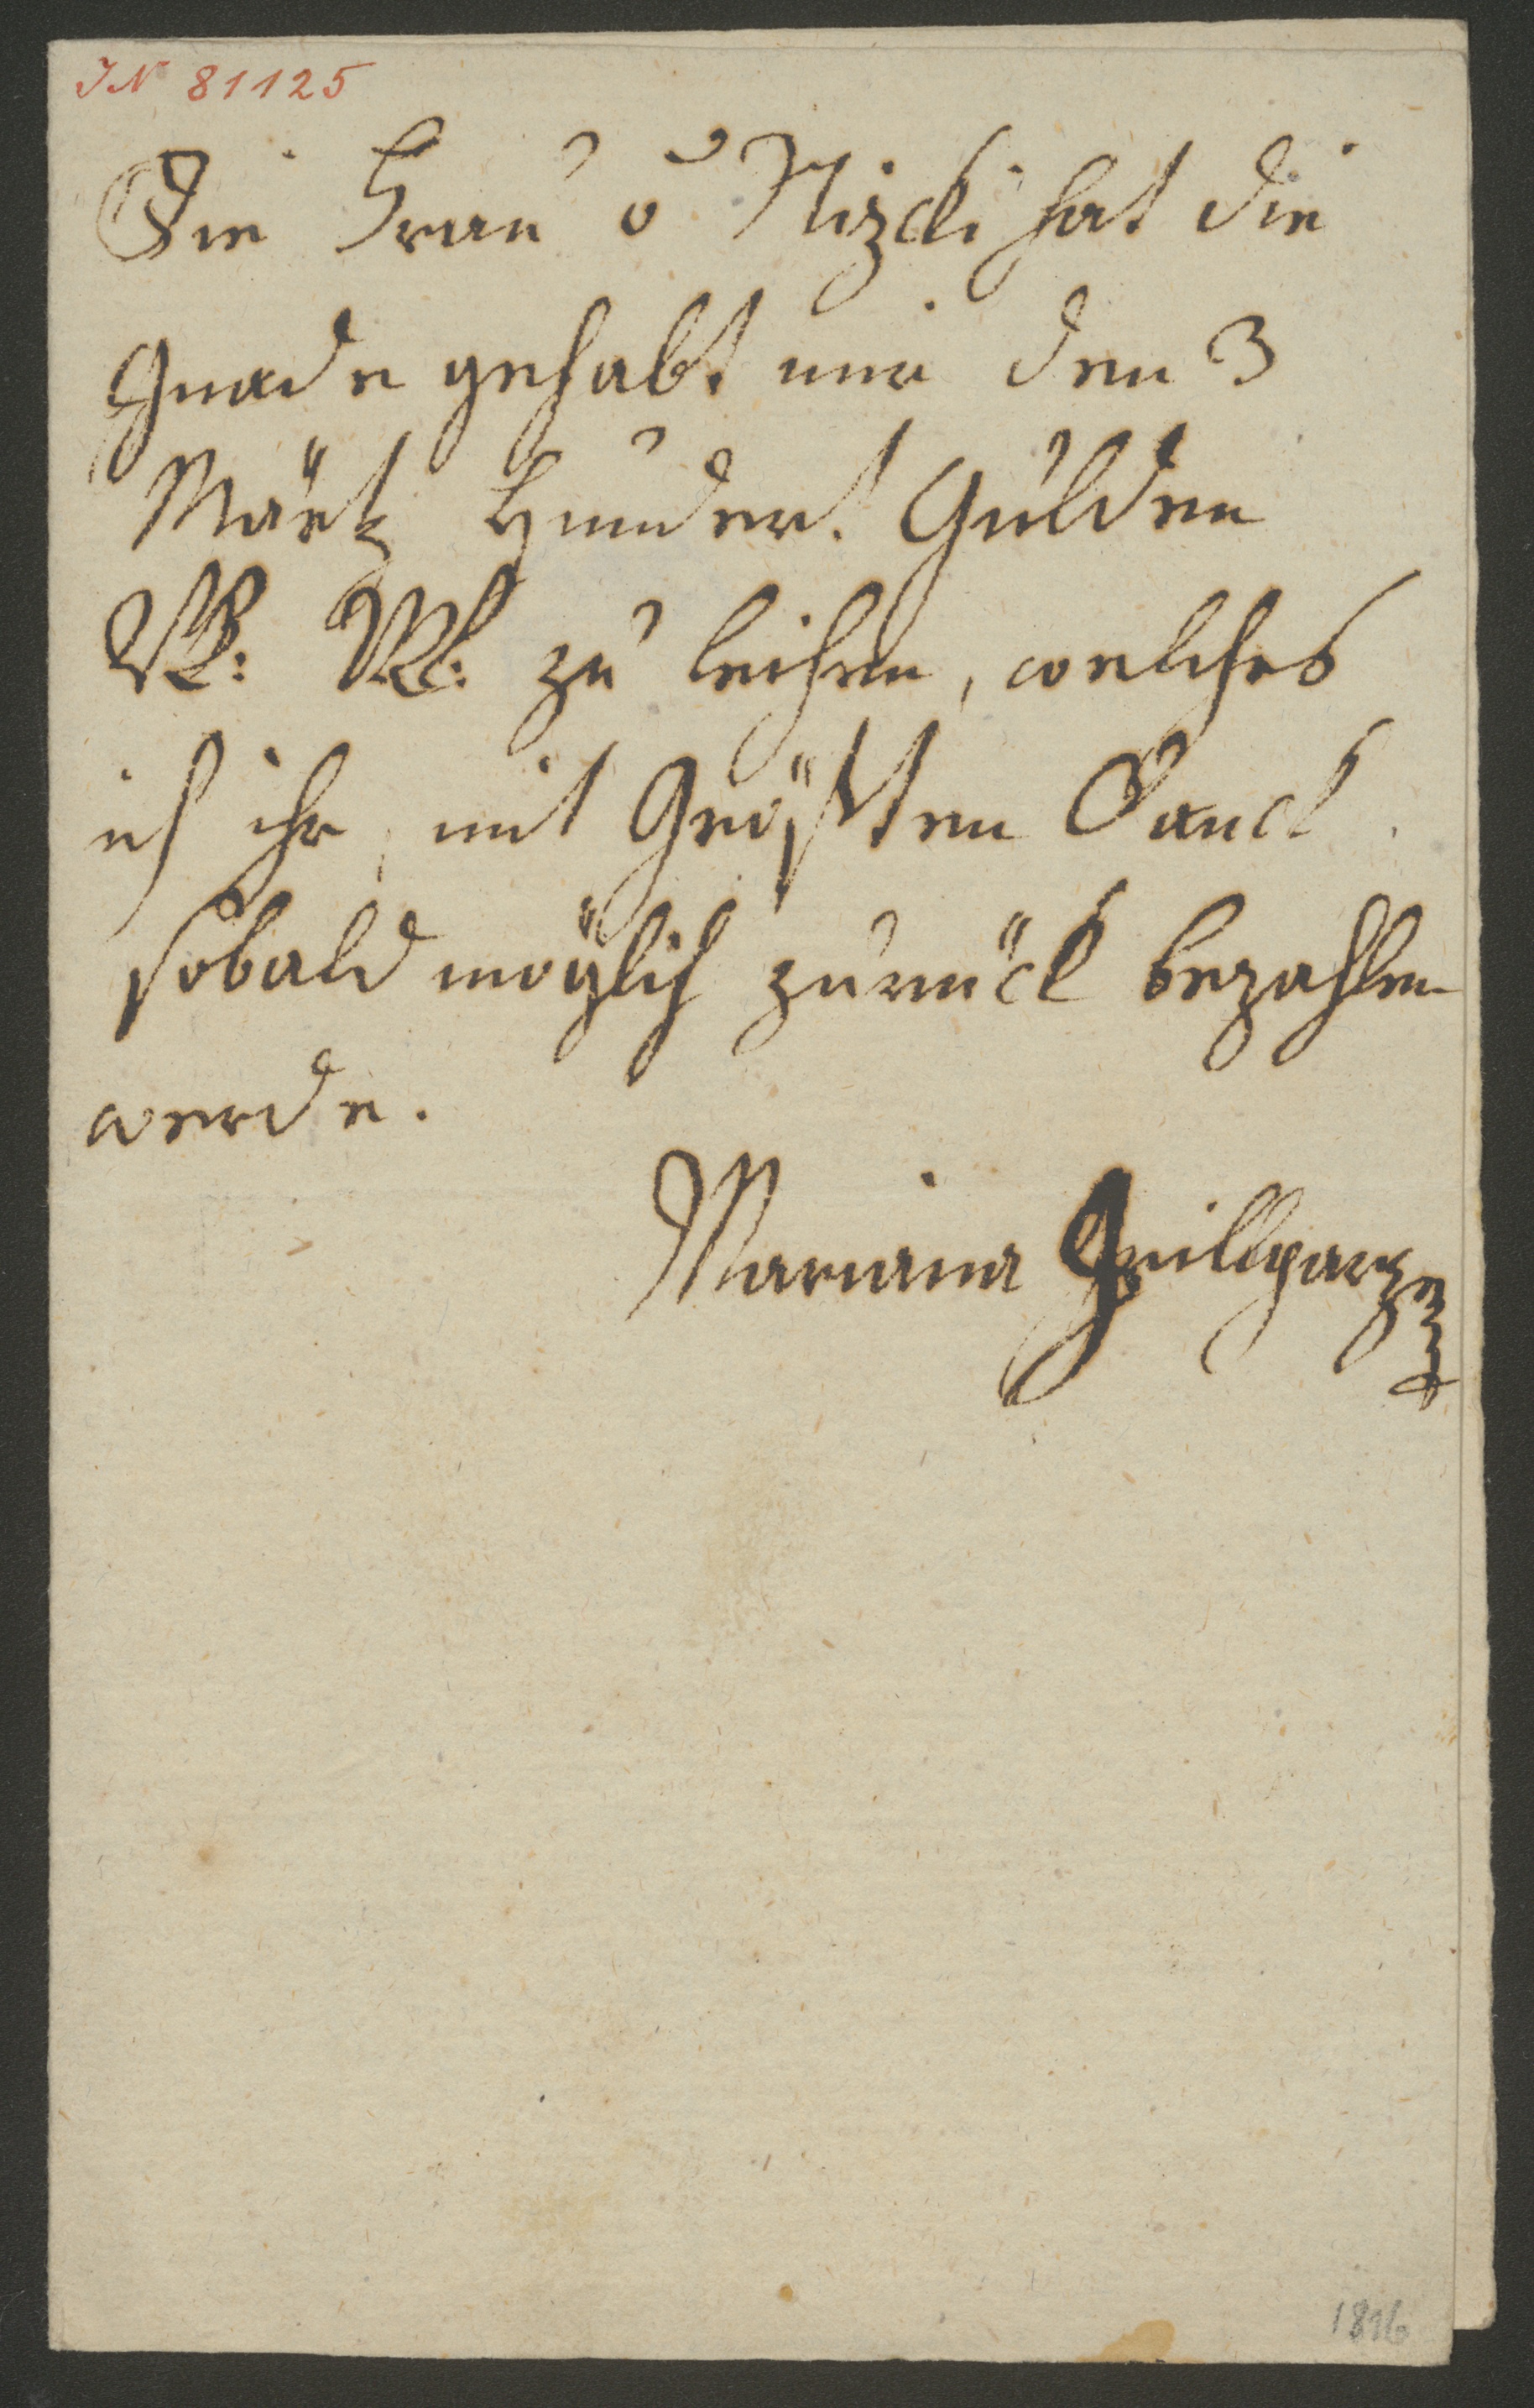 IN 81125
Die Frau v Nizcki hat die
Gnade gehabt mir den 3
Märtz Hundert Gulden
W: W: zu leihen, welches
ich ihr, mit Größten Danck
sobald möglich zurück bezahlen
werde.
Mariana Grillparzer
1816